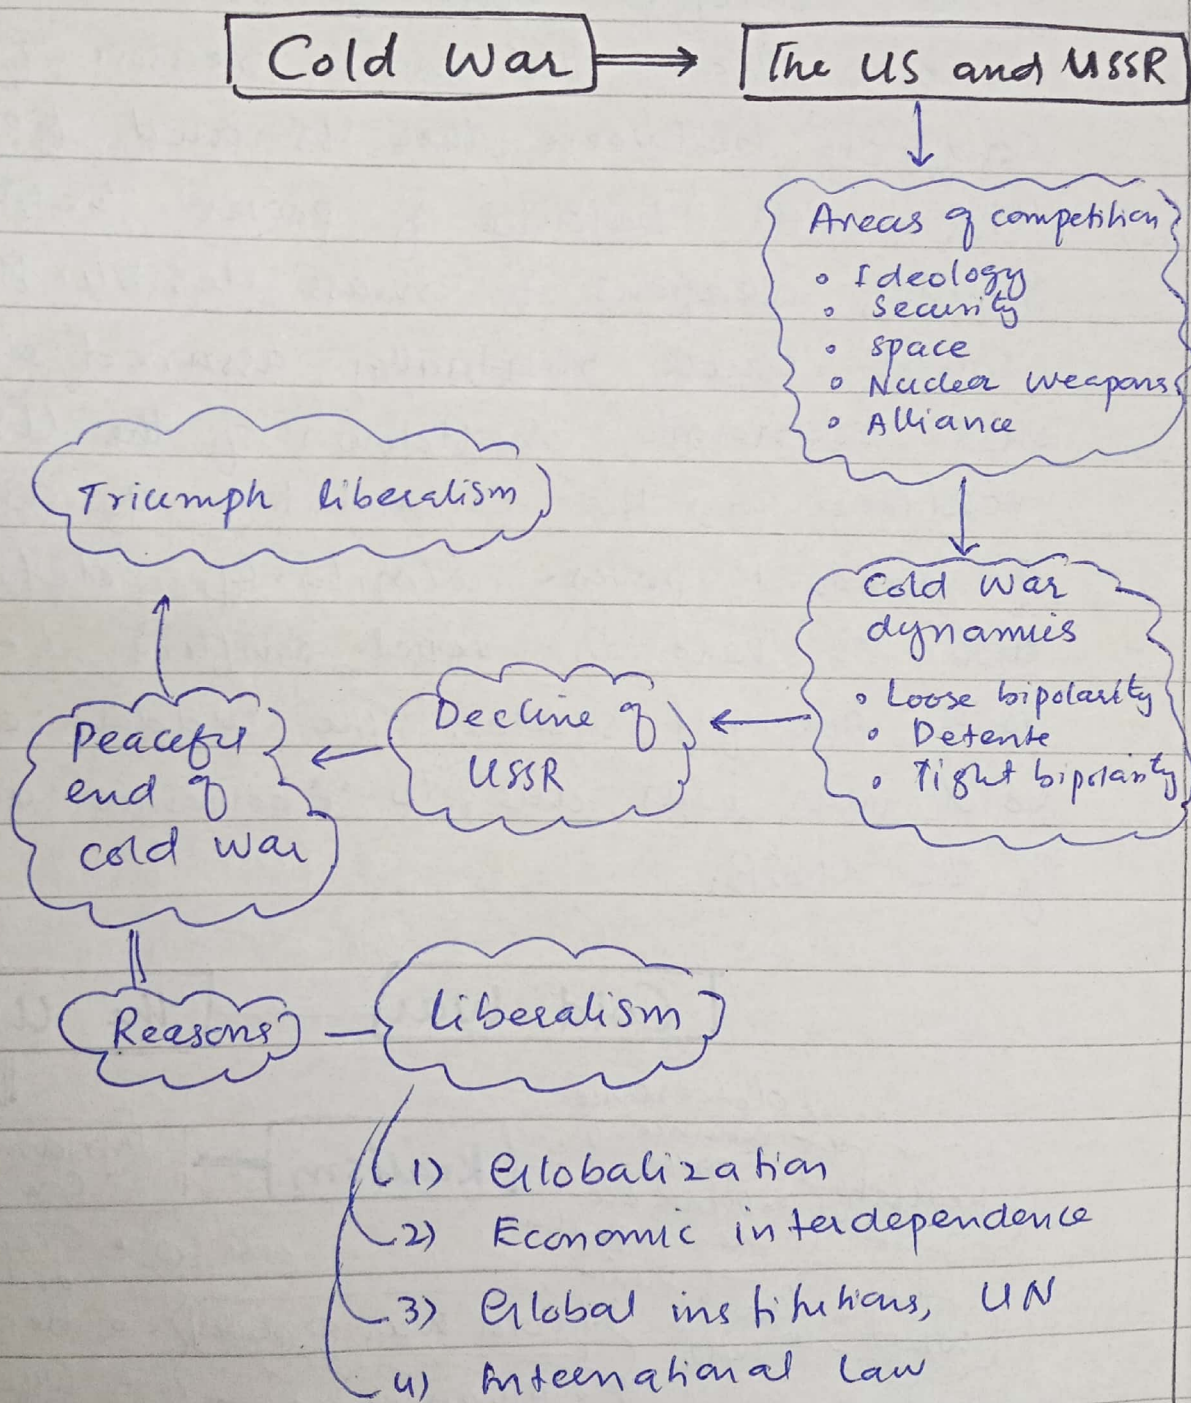 Cold War
The US and USSR
Areas of competition
• Ideology
• Security
• space
• Nuclear weapons
• Alliance
Cold War
dynamics
• Loose bipolarity
• Detente
• Tight bipolarity
Decline of
USSR
Peaceful
end of
cold war
Triumph liberalism
Reasons
liberalism
1) Globalization
2) Economic interdependence
3) Global institutions, UN
4) International law